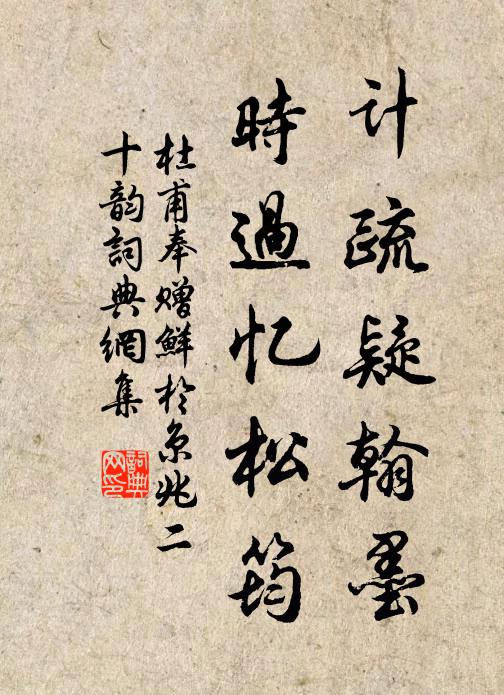 计疏疑翰墨
時過忆松筠
杜甫奉赠鮮於京兆二
十韵詞典網集
詞典
网印